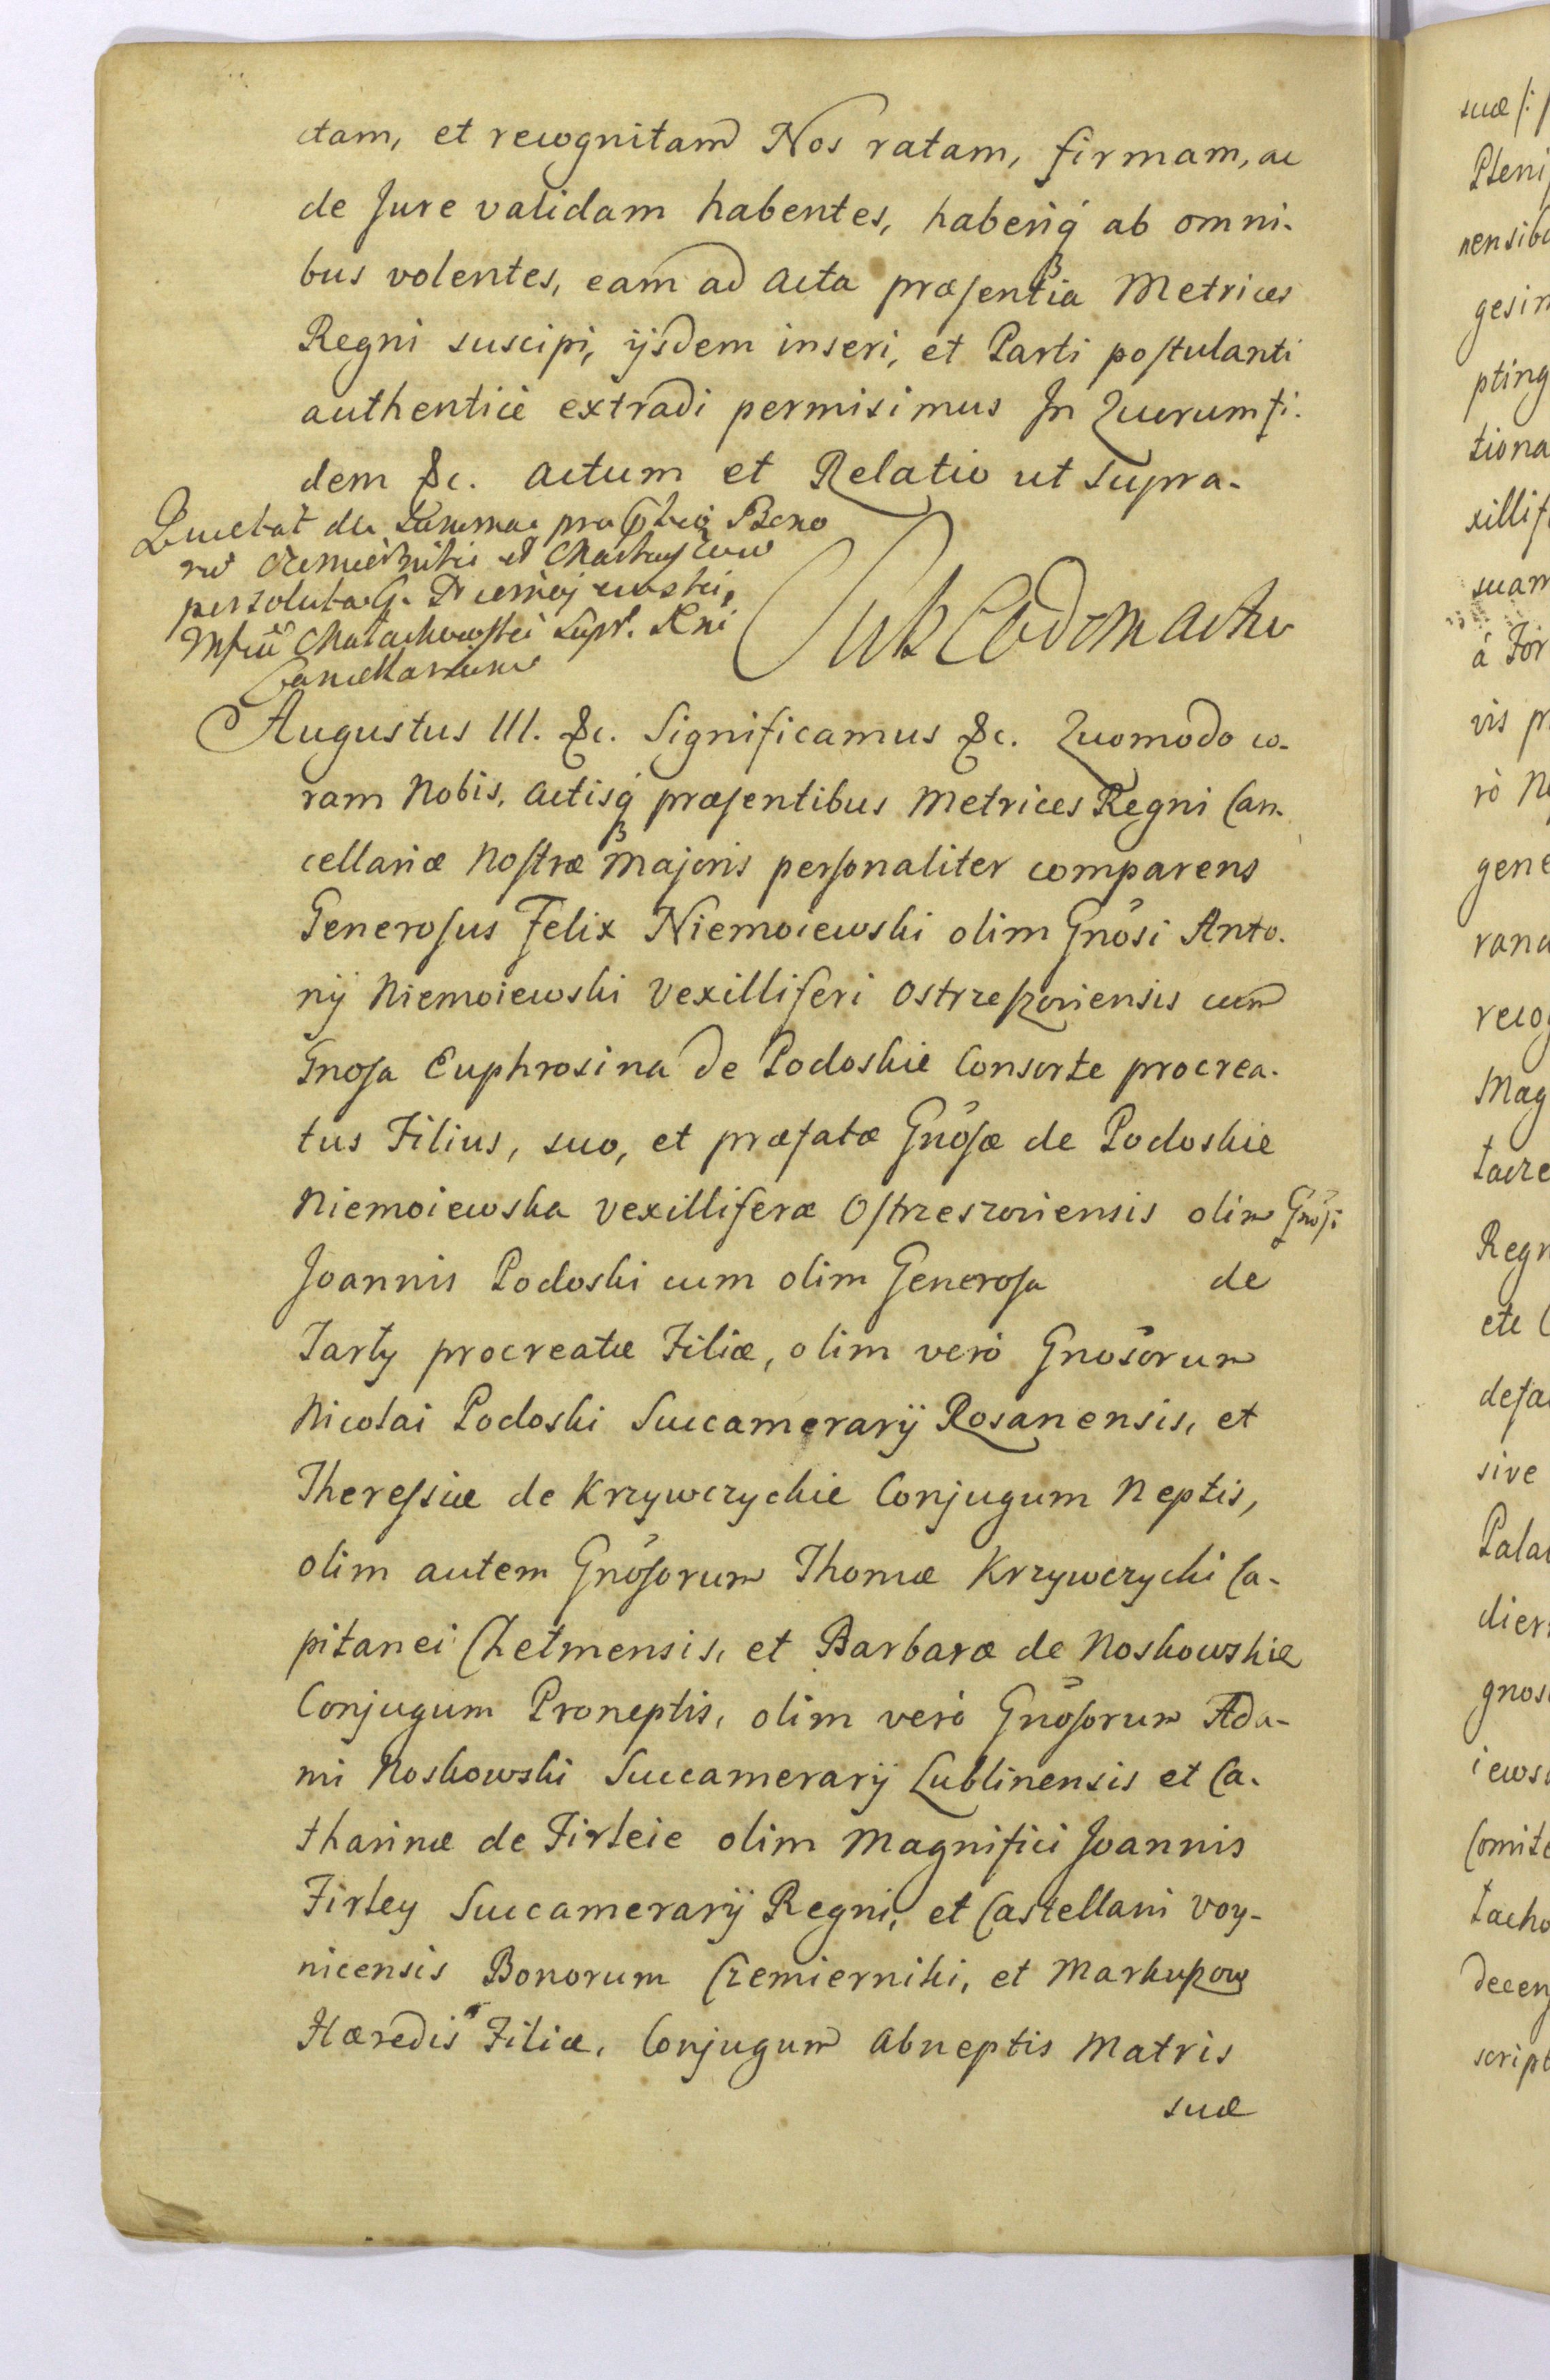 ctam, et recognitam Nos ratam, firmam, ac
de Jure validam habentes, haberiq́ ab omni-
bus volentes, eam ad acta præsentia Metrices
Regni suscipi, ijsdem inseri, et Parti postulanti
authenticè extradi permisimus In Quorum fi-
dem &c. actum et Relatio ut supra.
Quietat de Summa
persoluta G. Niemojewski,
Mfcū Małachowski Supr. Rni
Cancellarium
Sub Eodem actu
Augustus III. &c. Significamus &c. Quomodo co-
ram Nobis, actisq́ præsentibus Metrices Regni Can-
cellariæ Nostræ Majoris personaliter comparens
Generosus Felix Niemoiewski olim Gnōsi Anto-
nij Niemoiewski Vexilliferi Ostrzeszoviensis cum
Gnosa Euphrosina de Podoskie Consorte procrea-
tus Filius, suo, et præfatæ Gnōsæ de Podoskie
Niemoiewska Vexilliferæ Ostrzeszoviensis olim Gnōsi
Joannis Podoski cum olim Generosa de
Tarły procreatæ Filiæ, olim verò Gnōsorum
Nicolai Podoski Succamerarij Rosanensis, et
Theressiæ de Krzywczyckie Conjugum Neptis,
olim autem Gnōsorum Thomæ Krzywczycki Ca-
pitanei Chełmensis, et Barbaræ de Noskowskie
Conjugum Proneptis, olim verò Gnōsorum Ada-
mi Noskowski Succamerarij Lublinensis et Ca-
tharinæ de Firleie olim Magnifici Joannis
Firley Succamerarij Regni, et Castellani Voy-
nicensis Bonorum Czemierniki, et Markuszow
Hæredis Filiæ, Conjugum abneptis Matris
suæ